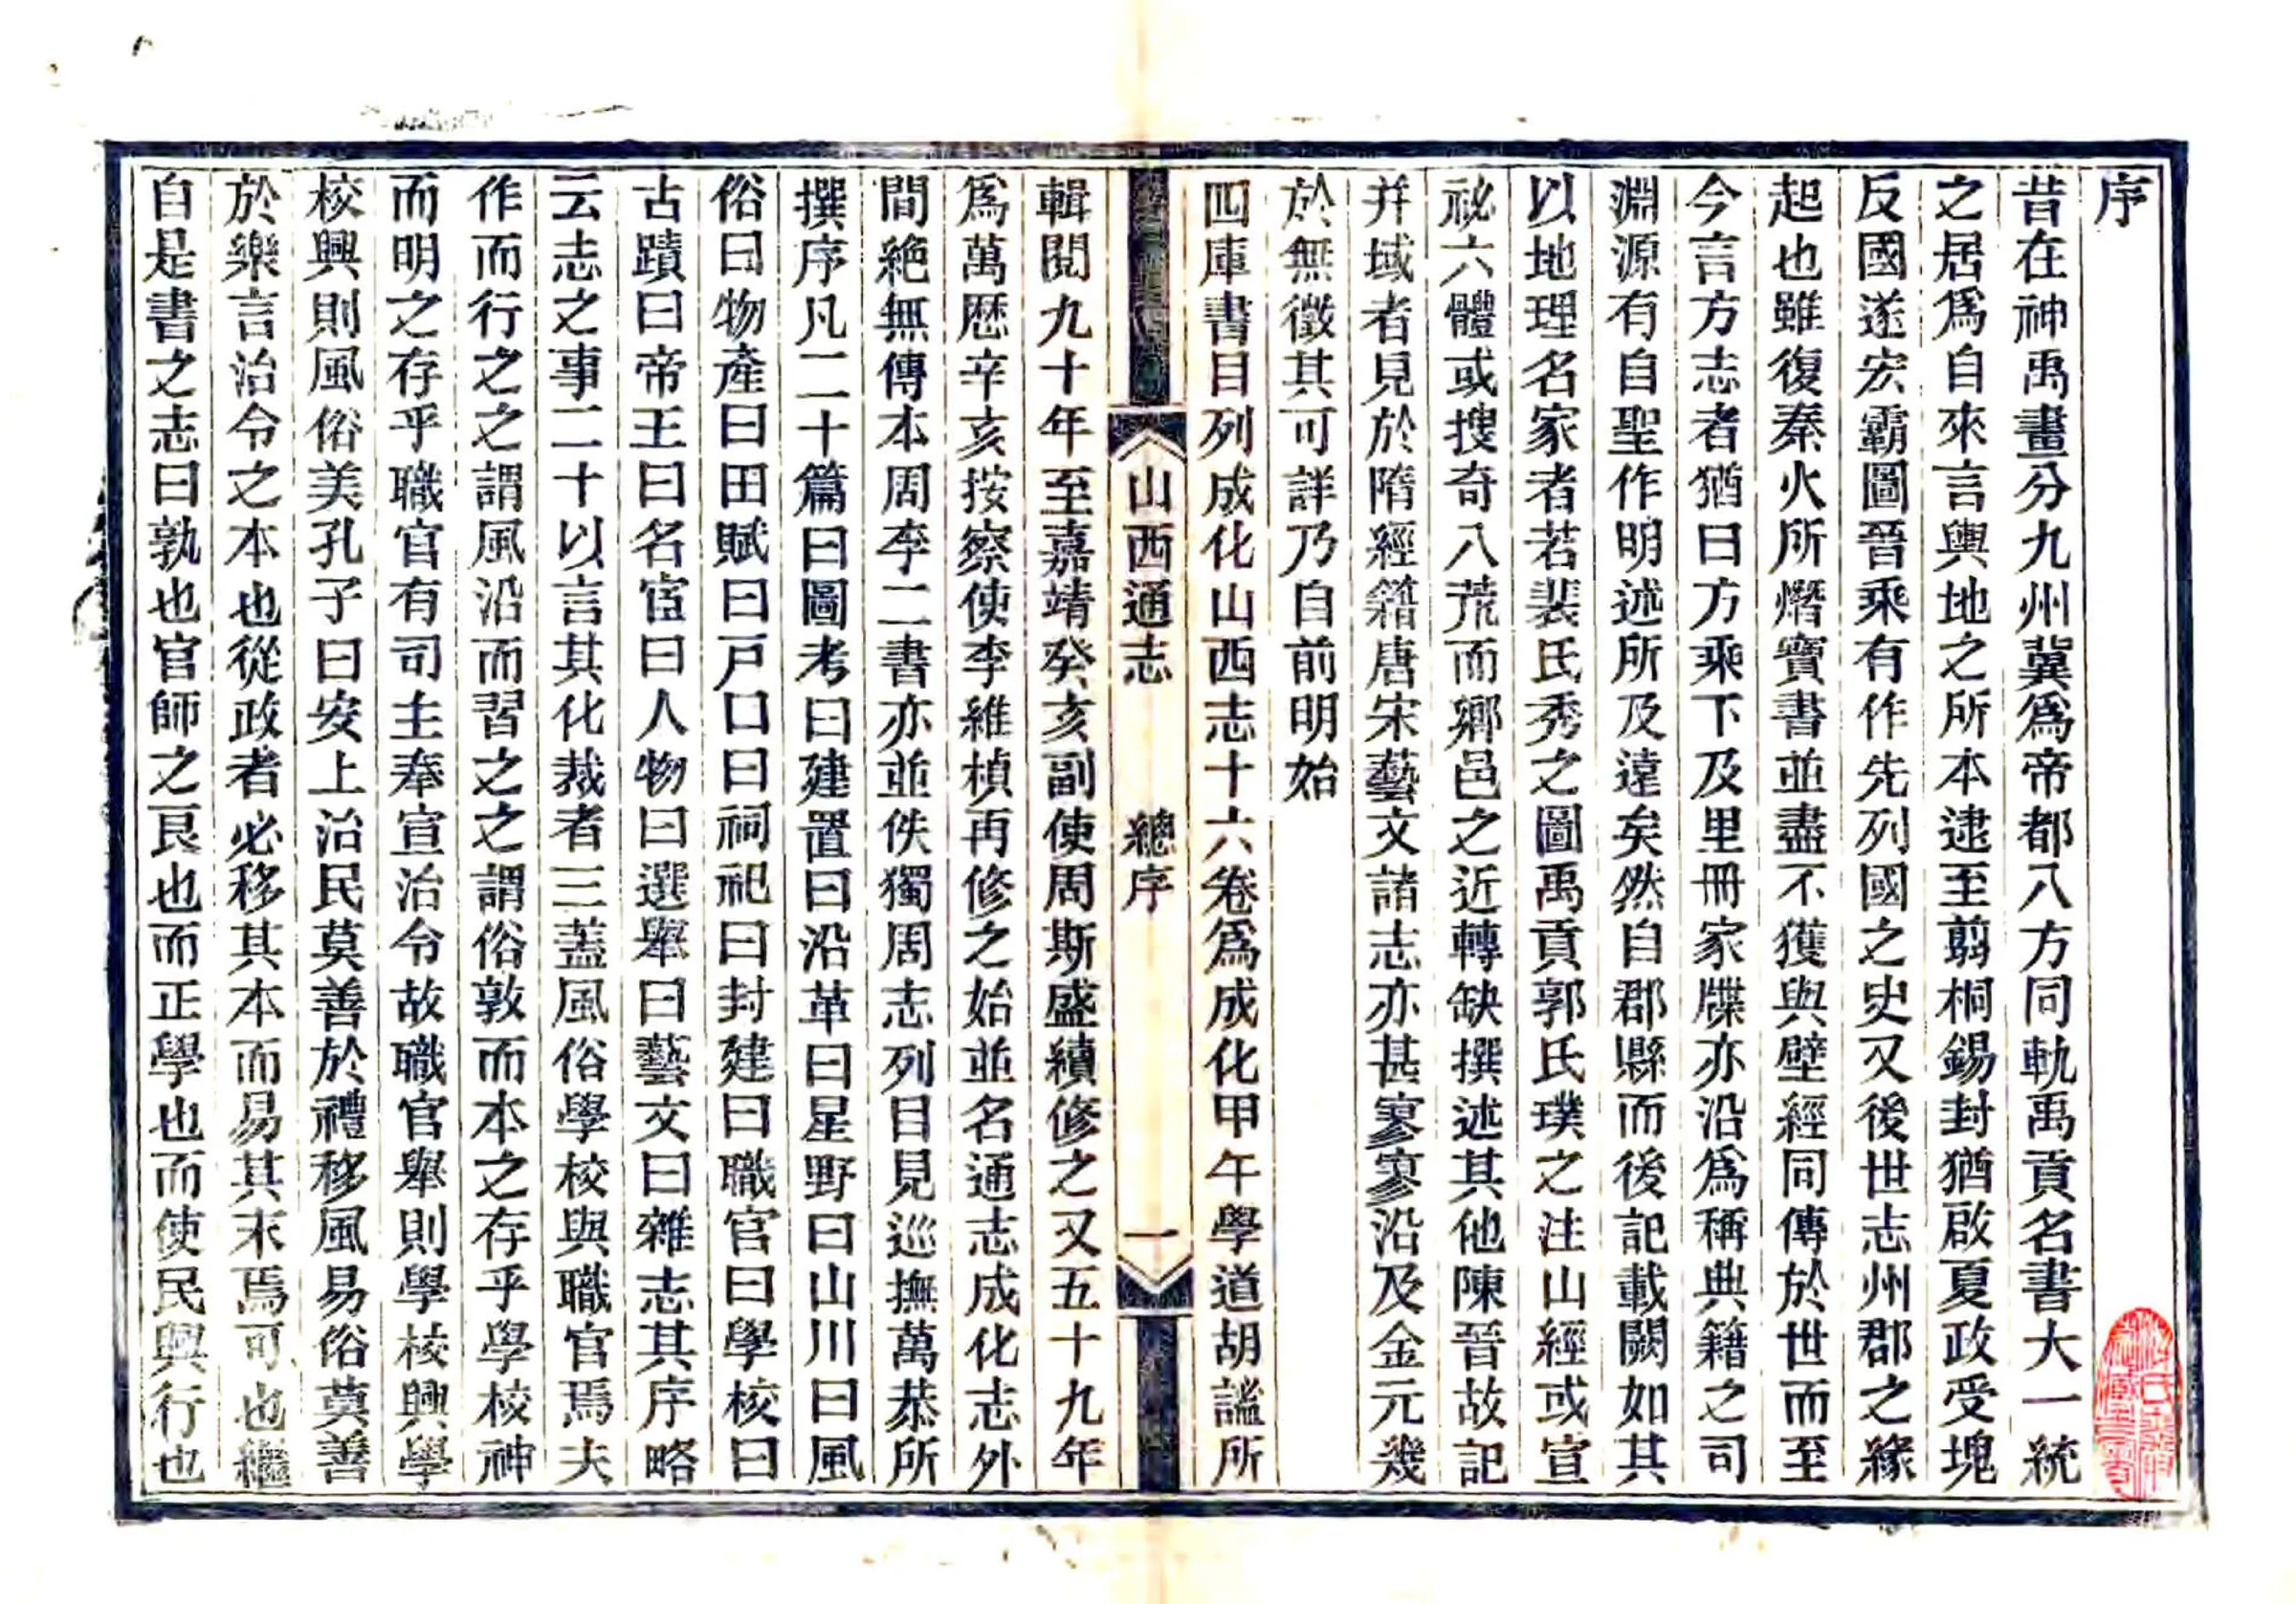 序
昔在神禹畫分九州冀爲帝都八方同軌禹貢名書大一統
之居爲自來言輿地之所本逮至翦桐錫封猶啟夏政受塊
反國遂宏霸圖晉乘有作先列國之史又後世志州郡之緣
起也雖復秦火所燔寶書並盡不獲與壁經同傳於世而至
今言方志者猶曰方乘下及里冊家牒亦沿爲稱典籍之司
淵源有自聖作明述所及遠矣然自郡縣而後記載闕如其
以地理名家者若裴氏秀之圖禹貢郭氏璞之注山經或宣
祕六體或搜奇八荒而鄉邑之近轉缺撰述其他陳晉故記
并域者見於隋經籍唐宋藝文諸志亦甚寥寥沿及金元幾
於無徵其可詳乃自前明始
四庫書目列成化山西志十六卷爲成化甲午學道胡謐所
山西通志 總序 一
輯閱九十年至嘉靖癸亥副使周斯盛續修之又五十九年
爲萬歷辛亥按察使李維楨再修之始並名通志成化志外
間絶無傳本周李二書亦並佚獨周志列目見巡撫萬恭所
撰序凡二十篇曰圖考曰建置曰沿革曰星野曰山川曰風
俗曰物產曰田賦曰戸口曰祠祀曰封建曰職官曰學校曰
古蹟曰帝王曰名宦曰人物曰選舉曰藝文曰雜志其序略
云志之事二十以言其化裁者三蓋風俗學校與職官焉夫
作而行之之謂風沿而習之之謂俗敦而本之存乎學校神
而明之存乎職官有司主奉宣治令故職官舉則學校興學
校興則風俗美孔子曰安上治民莫善於禮移風易俗莫善
於樂言治令之本也從政者必移其本而易其末焉可也繼
自是書之志曰孰也官師之良也而正學也而使民興行也